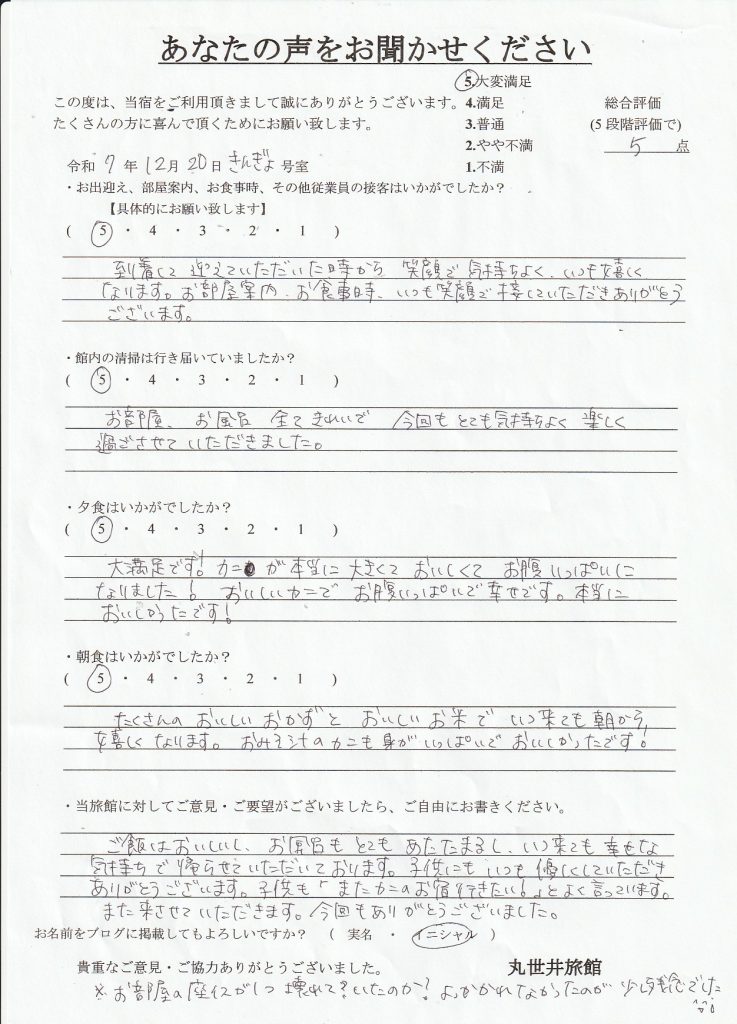 あなたの声をお聞かせください
5.大変満足
この度は、当宿をご利用頂きまして誠にありがとうございます。 4.満足 総合評価
たくさんの方に喜んで頂くためにお願い致します。 3.普通 (5段階評価で)
2.やや不満 5 点
令和 7 年 12月 20日 きんぎょ 号室 1.不満
・お出迎え、部屋案内、お食事時、その他従業員の接客はいかがでしたか?
【具体的にお願い致します】
( 5 ・ 4 ・ 3 ・ 2 ・ 1 )
到着して 迎えていただいた時から 笑顔で 気持ちよく、いつも嬉しく
なります。お部屋案内、お食事時、いつも笑顔で接していただきありがとう
ございます。
・館内の清掃は行き届いていましたか?
( 5 ・ 4 ・ 3 ・ 2 ・ 1 )
お部屋、お風呂 全て きれいで 今回も とても気持ちよく 楽しく
過ごさせて いただきました。
・夕食はいかがでしたか?
( 5 ・ 4 ・ 3 ・ 2 ・ 1 )
大満足です! カニ が 本当に 大きくて おいしくて お腹いっぱいに
なりました! おいしいカニで お腹いっぱいで 幸せです。本当に
おいしかったです!
・朝食はいかがでしたか?
( 5 ・ 4 ・ 3 ・ 2 ・ 1 )
たくさんの おいしい おかずと おいしい お米で いつ来ても 朝から
嬉しく なります。 おみそ汁の カニも 身が いっぱいで おいしかったです!
・当旅館に対してご意見・ご要望がございましたら、ご自由にお書きください。
ご飯は おいしいし、お風呂も とても あたたまるし、いつ来ても 幸せな
気持ちで 帰らせていただいております。子供にも いつも 優しくしていただき
ありがとうございます。子供も「またカニのお宿行きたい!」とよく言っています。
また来させていただきます。今回もありがとうございました。
お名前をブログに掲載してもよろしいですか? ( 実名 ・ イニシャル )
貴重なご意見・ご協力ありがとうございました。 丸世井旅館
※お部屋の座イスが1つ 壊れて?いたのか? よっかかれなかったのが 少し残念でした